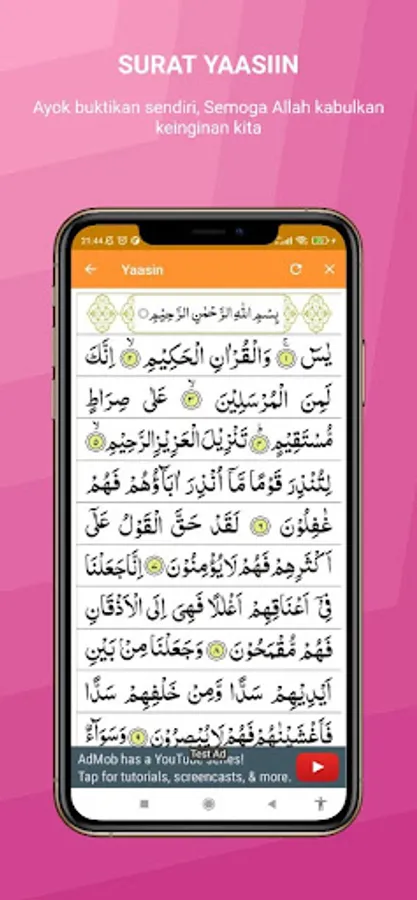 SURAT YAASIIN
Ayok buktikan sendiri, Semoga Allah kabulkan
keinginan kita
21:44
Yaasin
بِسْمِ اللّٰهِ الرَّحْمٰنِ الرَّحِيْمِ
يٰسٓ ۚ ١ وَالْقُرْاٰنِ الْحَكِيْمِ ٢ اِنَّكَ
لَمِنَ الْمُرْسَلِيْنَ ٣ عَلٰى صِرَاطٍ
مُّسْتَقِيْمٍ ٤ تَنْزِيْلَ الْعَزِيْزِ الرَّحِيْمِ ٥
لِتُنْذِرَ قَوْمًا مَّآ اُنْذِرَ اٰبَآؤُهُمْ فَهُمْ
غٰفِلُوْنَ ٦ لَقَدْ حَقَّ الْقَوْلُ عَلٰٓى
اَكْثَرِهِمْ فَهُمْ لَا يُؤْمِنُوْنَ ٧ اِنَّا جَعَلْنَا
فِيْٓ اَعْنَاقِهِمْ اَغْلٰلًا فَهِيَ اِلَى الْاَذْقَانِ
فَهُمْ مُّقْمَحُوْنَ ٨ وَجَعَلْنَا مِنْۢ بَيْنِ
اَيْدِيْهِمْ سَدًّا وَّمِنْ خَلْفِهِمْ سَدًّا
فَاَغْشَيْنٰهُمْ فَهُمْ لَا يُبْصِرُوْنَ ٩ وَسَوَآءٌ
Test Ad
AdMob has a YouTube series!
Tap for tutorials, screencasts, & more.